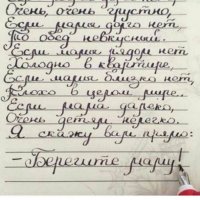 Очень, очень грустно,
Если мама долго нет,
То обед невкусный.
Если мамы рядом нет
Холодно в квартире,
Если мамы близко нет,
Плохо в целом мире.
Если мама далеко,
Очень детям нелегко.
Я скажу вам прямо:
- Берегите маму!